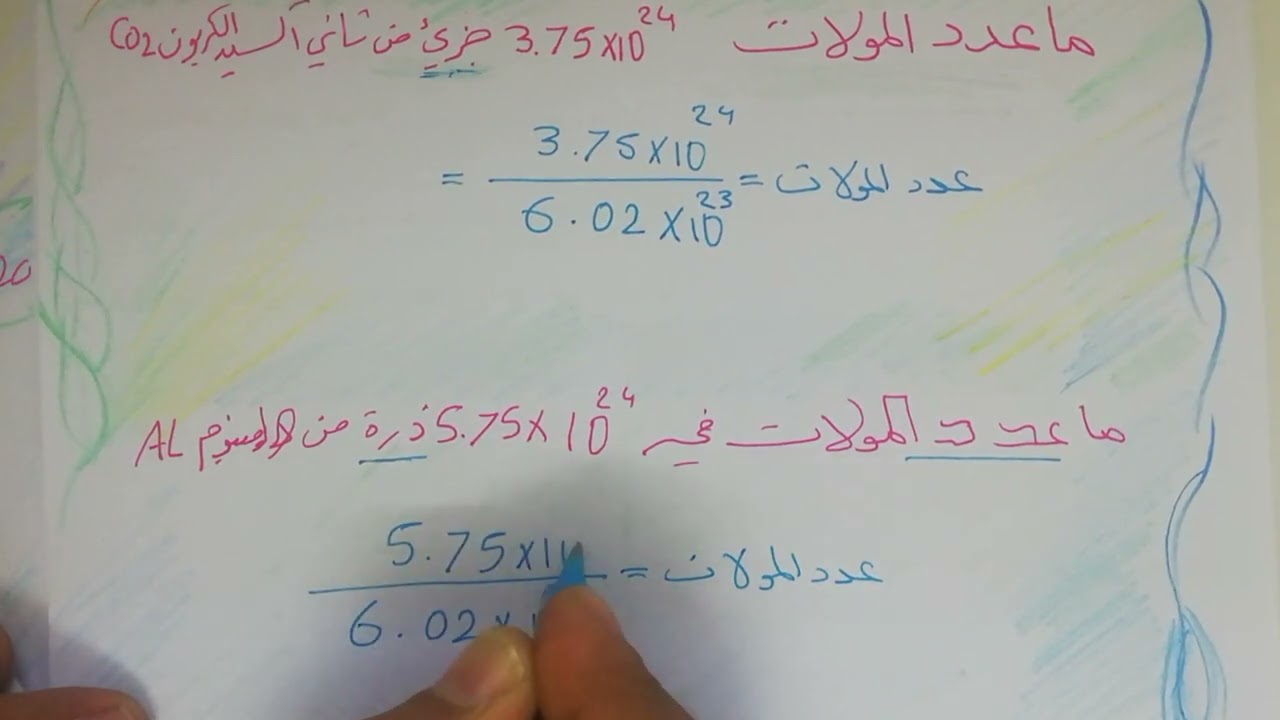 ما عدد المولات 3.75×10²⁴ جزيء من ثاني اكسيد الكربون CO2
عدد المولات = 3.75×10²⁴ / 6.02×10²³ =
ما عدد المولات في 5.75×10²⁴ ذرة من الالمنيوم AL
عدد المولات = 5.75×1 / 6.02×1
20